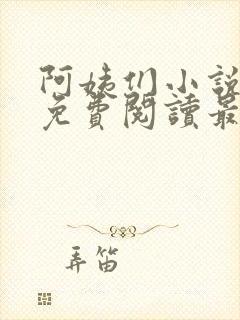 阿姨们小說
免費閱讀最
弄笛